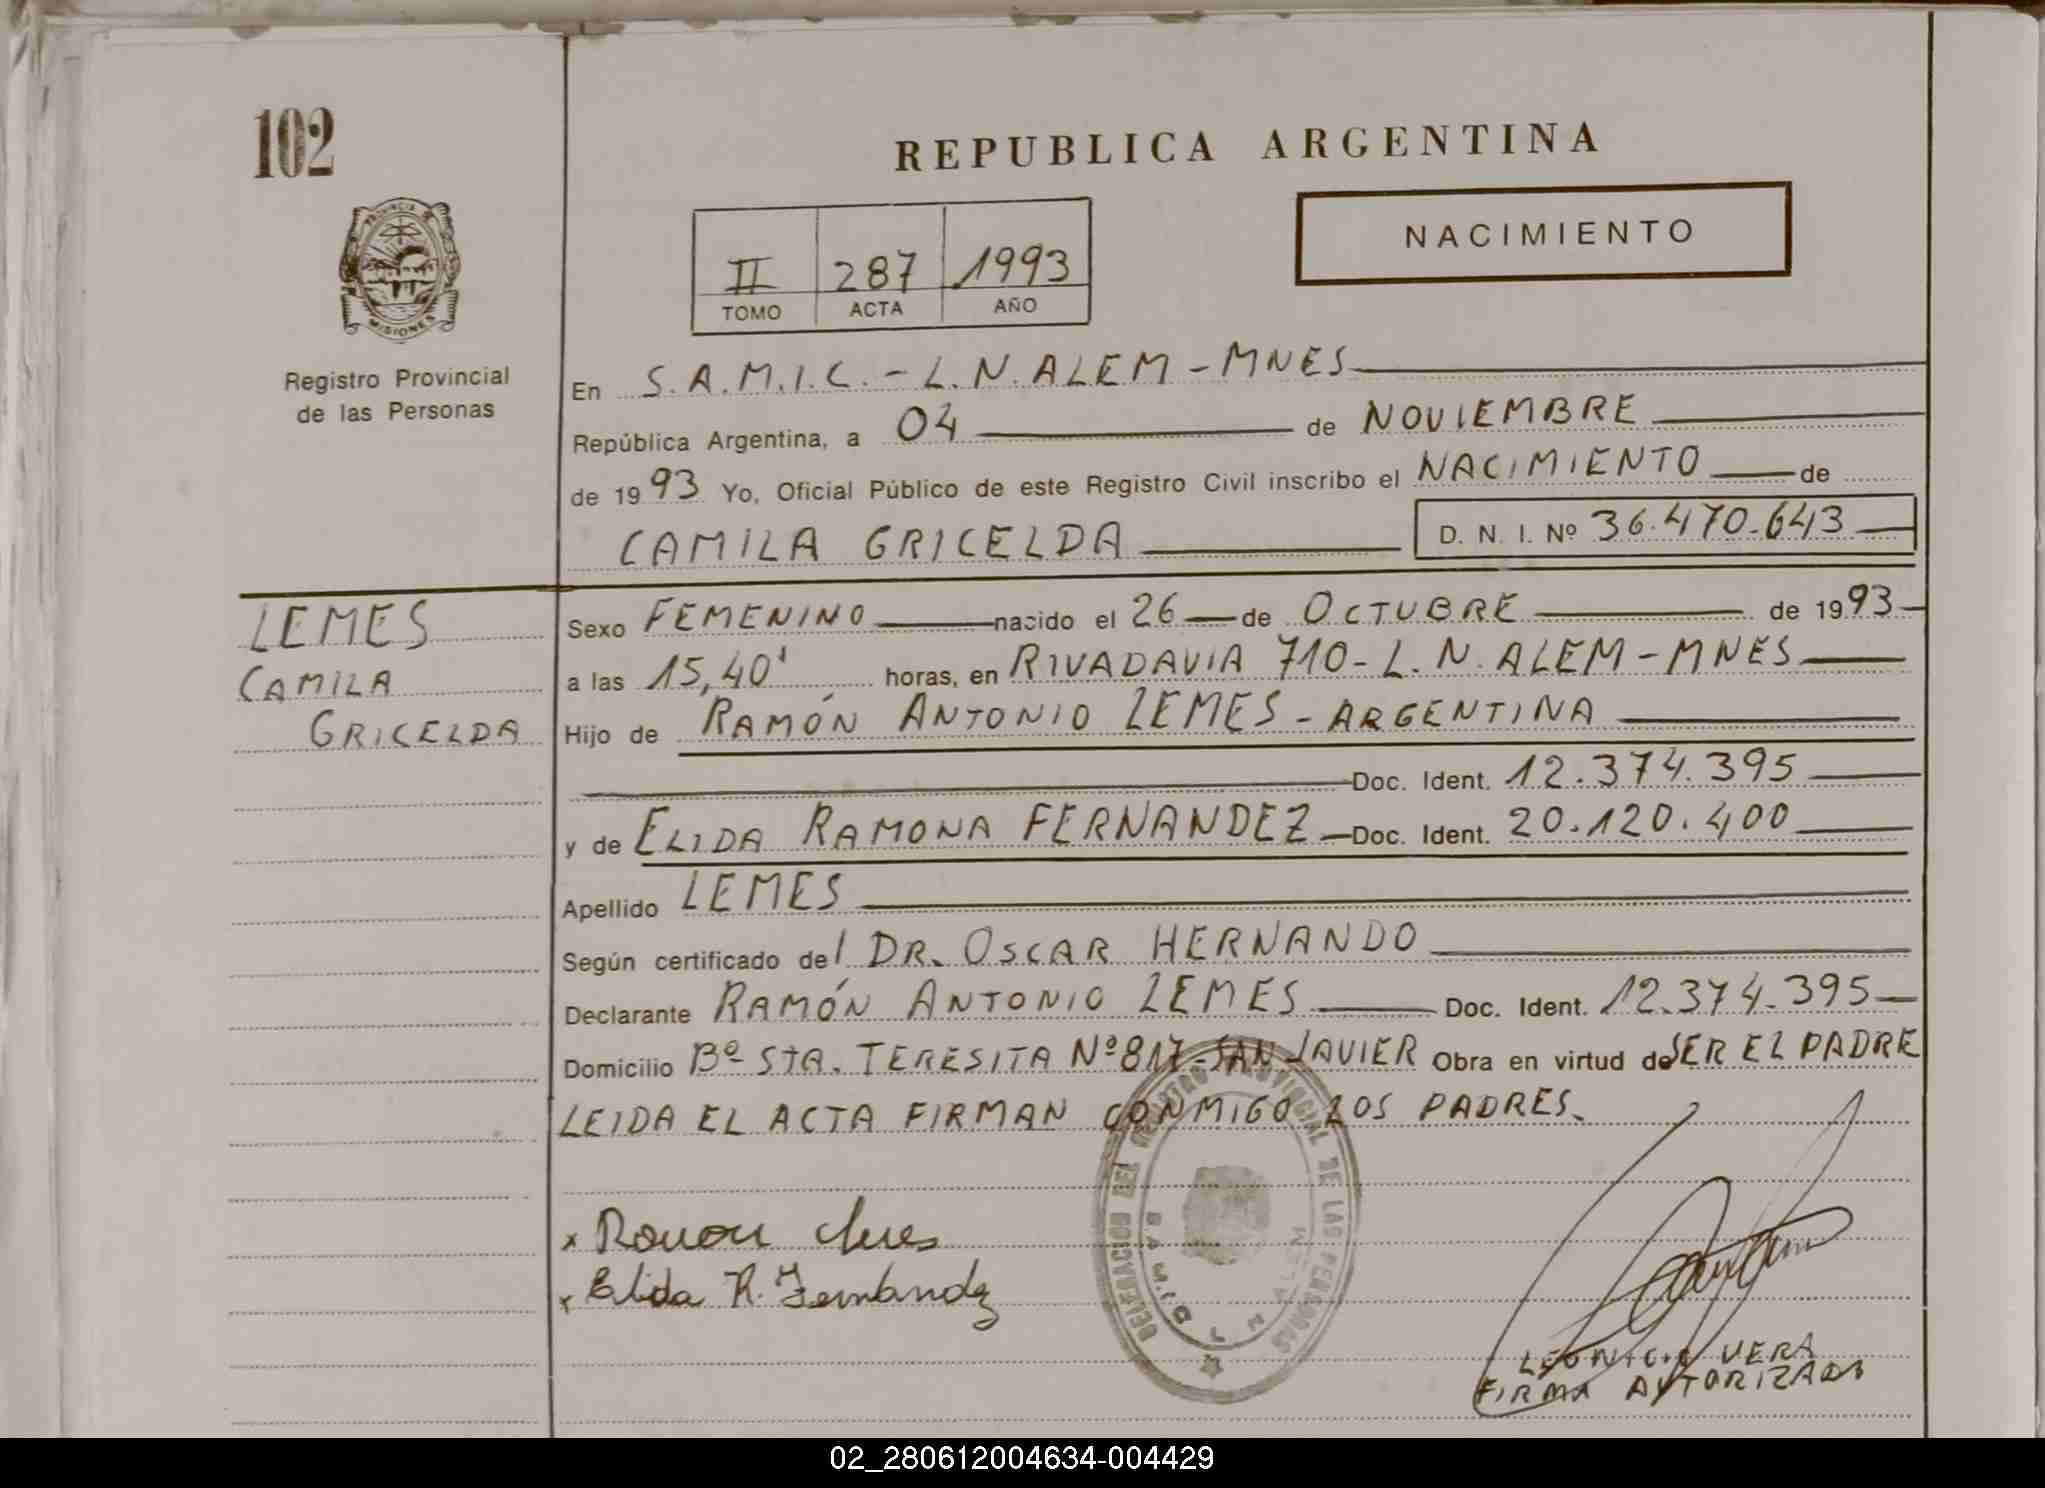 102
REPUBLICA ARGENTINA
PROVINCIA DE
MISIONES
NACIMIENTO
II 287 1993
TOMO ACTA AÑO
Registro Provincial
de las Personas
En S.A.M.I.C. - L.N. ALEM - MNES
República Argentina, a 04 de NOVIEMBRE
de 1993 Yo, Oficial Público de este Registro Civil inscribo el NACIMIENTO de
CAMILA GRICELDA D. N. I. Nº 36.470.643
LEMES
CAMILA
GRICELDA
Sexo FEMENINO nacido el 26 de OCTUBRE de 1993
a las 15,40' horas, en RIVADAVIA 710 - L.N. ALEM - MNES
Hijo de RAMÓN ANTONIO LEMES - ARGENTINA
Doc. Ident. 12.374.395
y de ELIDA RAMONA FERNANDEZ Doc. Ident. 20.120.400
Apellido LEMES
Según certificado del DR. OSCAR HERNANDO
Declarante RAMÓN ANTONIO LEMES Doc. Ident. 12.374.395
Domicilio Bº STA. TERESITA Nº 817 - SAN JAVIER Obra en virtud de SER EL PADRE
LEIDA EL ACTA FIRMAN CONMIGO LOS PADRES.
DELEGACION DEL REGISTRO PROVINCIAL DE LAS PERSONAS
x Ramon Lemes
x Elida R. Fernandez
LEONICIO VERA
FIRMA AUTORIZADA
02_280612004634-004429